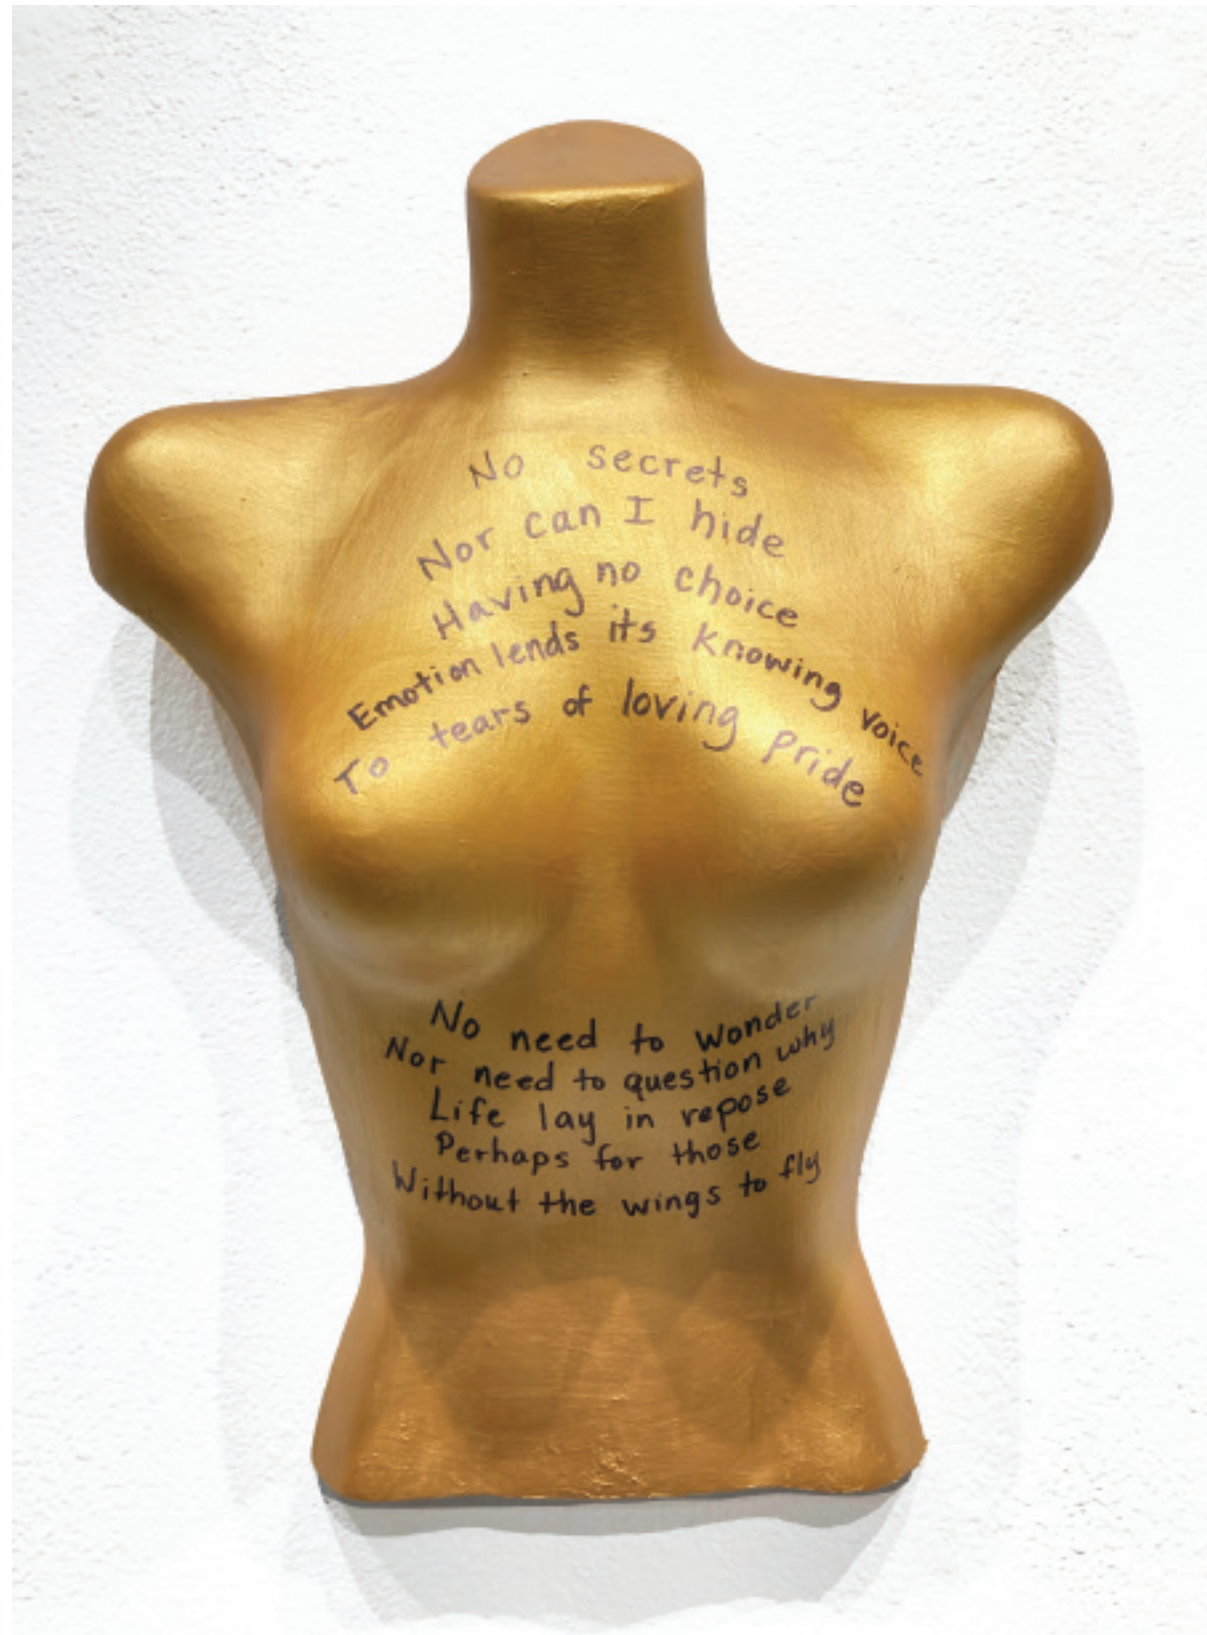 No secrets
Nor can I hide
Having no choice
Emotion lends its knowing voice
To tears of loving pride
No need to wonder
Nor need to question why
Life lay in repose
Perhaps for those
Without the wings to fly